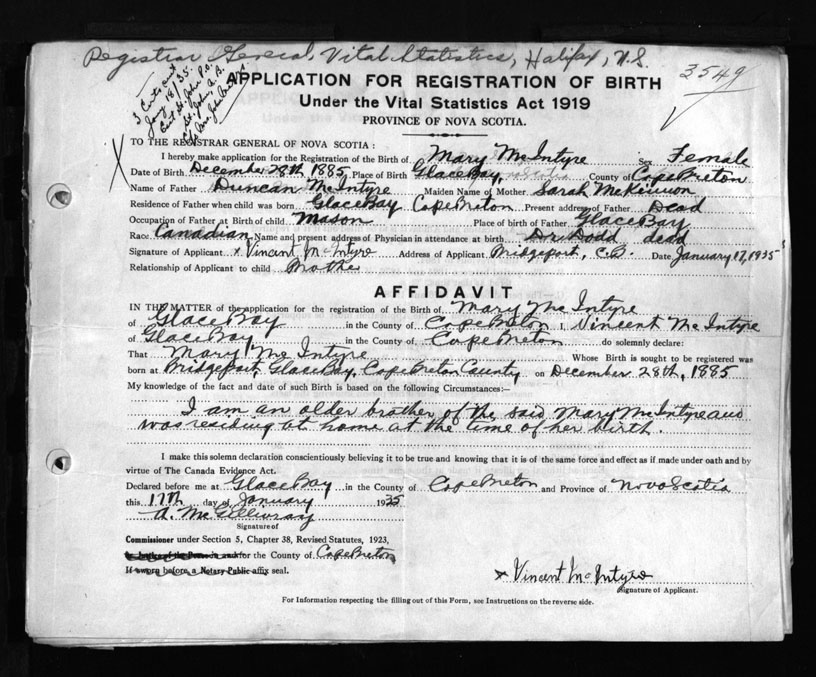 Registrar General, Vital Statistics, Halifax, N.S.
3549
3 Certs out
Jany 18/35.
East St. John P.O.
St. John, N.B.
APPLICATION FOR REGISTRATION OF BIRTH
Under the Vital Statistics Act 1919
PROVINCE OF NOVA SCOTIA.
TO THE REGISTRAR GENERAL OF NOVA SCOTIA:
I hereby make application for the Registration of the Birth of Mary McIntyre Sex Female
Date of Birth December 28th 1885, Place of Birth Glace Bay, County of Cape Breton
Name of Father Duncan McIntyre Maiden Name of Mother Sarah McKinnon
Residence of Father when child was born Glace Bay Cape Breton Present address of Father Dead
Occupation of Father at Birth of child Mason Place of birth of Father Glace Bay
Race Canadian Name and present address of Physician in attendance at birth Dr Dodd dead
Signature of Applicant x Vincent McIntyre Address of Applicant Bridgeport, C.B. Date January 17, 1935
Relationship of Applicant to child Brothe
AFFIDAVIT
IN THE MATTER of the application for the registration of the Birth of Mary McIntyre
of Glace Bay in the County of Cape Breton I, Vincent McIntyre
of Glace Bay in the County of Cape Breton do solemnly declare:
That Mary McIntyre Whose Birth is sought to be registered was
born at Bridgeport, Glace Bay, Cape Breton County on December 28th, 1885
My knowledge of the fact and date of such Birth is based on the following Circumstances:—
I am an older brother of the said Mary McIntyre and
was residing at home at the time of her birth.
I make this solemn declaration conscientiously believing it to be true and knowing that it is of the same force and effect as if made under oath and by
virtue of The Canada Evidence Act.
Declared before me at Glace Bay in the County of Cape Breton and Province of Nova Scotia
this 17th day of January 1935
A. McGillivray
Signature of
Commissioner under Section 5, Chapter 38, Revised Statutes, 1923,
for the County of Cape Breton
If sworn before a Notary Public affix seal.
x Vincent McIntyre
Signature of Applicant.
For Information respecting the filling out of this Form, see Instructions on the reverse side.